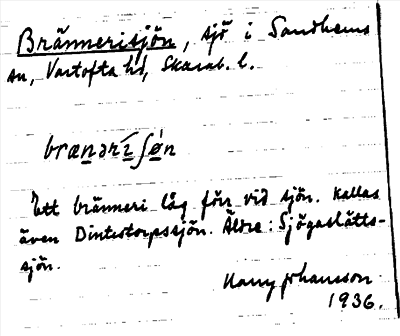 Brännerisjön, sjö i Sandhems
sn, Vartofta hd, Skarab. l.
brænəri ʃøn
Ett bränneri låg förr vid sjön. Kallas
även Dintestorpssjön. Äldre: Sjögaslätts-
sjön.
Harry Johansson
1936.